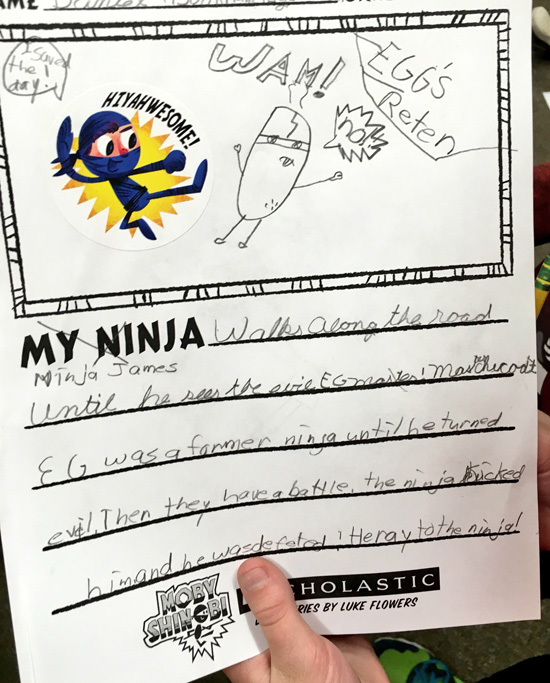 AME
I saved
the
day!
HIYAHWESOME!
WAM!
no!
EGG's
Reten
MY NINJA Walks along the road
Ninja James
Until he sees the evil EG master!
EG was a former ninja until he turned
evil. Then they have a battle. the ninja kicked
him and he was defeted! Heray to the ninja!
MOBY
SHINOBI
CHOLASTIC
RIES BY LUKE FLOWERS